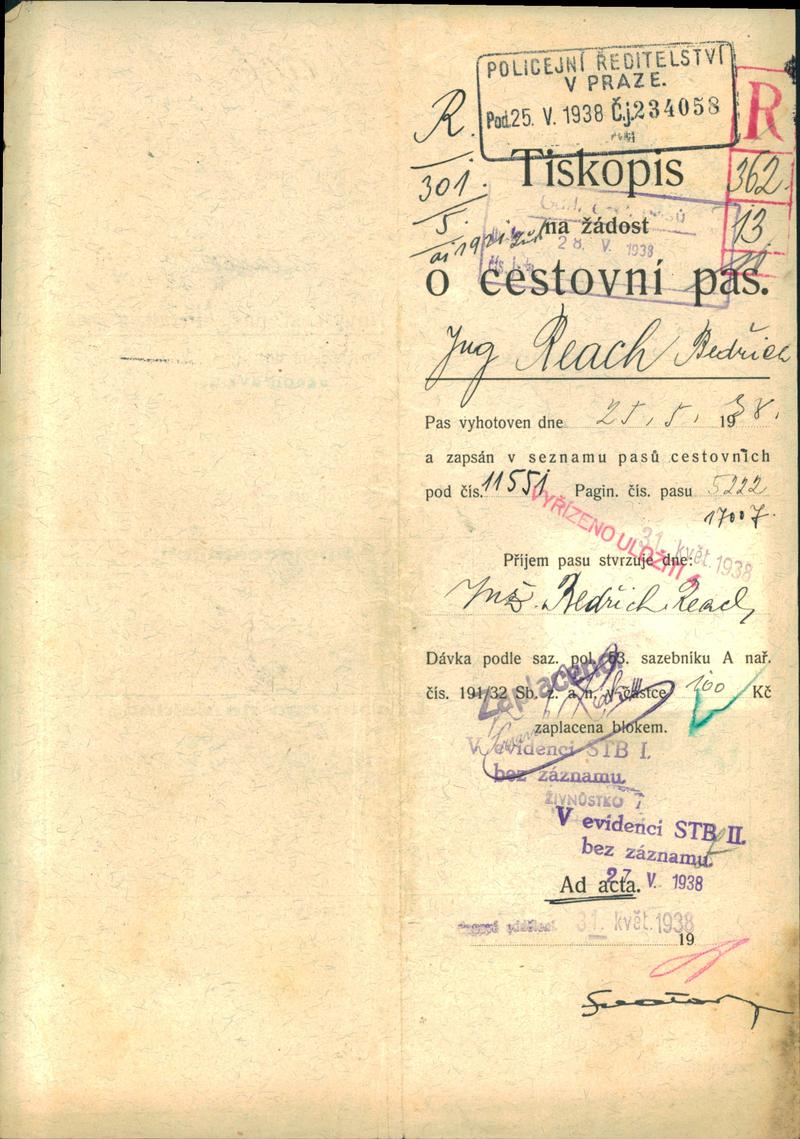 POLICEJNÍ ŘEDITELSTVÍ
V PRAZE.
Pod. 25. V. 1938 Č.j. 234058
R
R.
301.
5.
362.
13
Tiskopis
28. V. 1938
na žádost
o cestovní pas.
Ing Reach Bedřich
Pas vyhotoven dne 25. 5. 1938.
a zapsán v seznamu pasů cestovních
pod čís. 11551 Pagin. čís. pasu 5222
17007.
VYŘÍZENO ULOŽITI
31. květ. 1938
Příjem pasu stvrzuje dne:
Inž. Bedřich Reach
Dávka podle saz. pol. 53. sazebníku A nař.
Zaplaceno
čís. 191/32 Sb. z. a n. v částce 100 Kč
zaplacena blokem.
V evidenci STB I.
bez záznamu.
ŽIVNŮSTKO
V evidenci STB II.
bez záznamu.
27. V. 1938
Ad acta.
31. květ. 1938
19